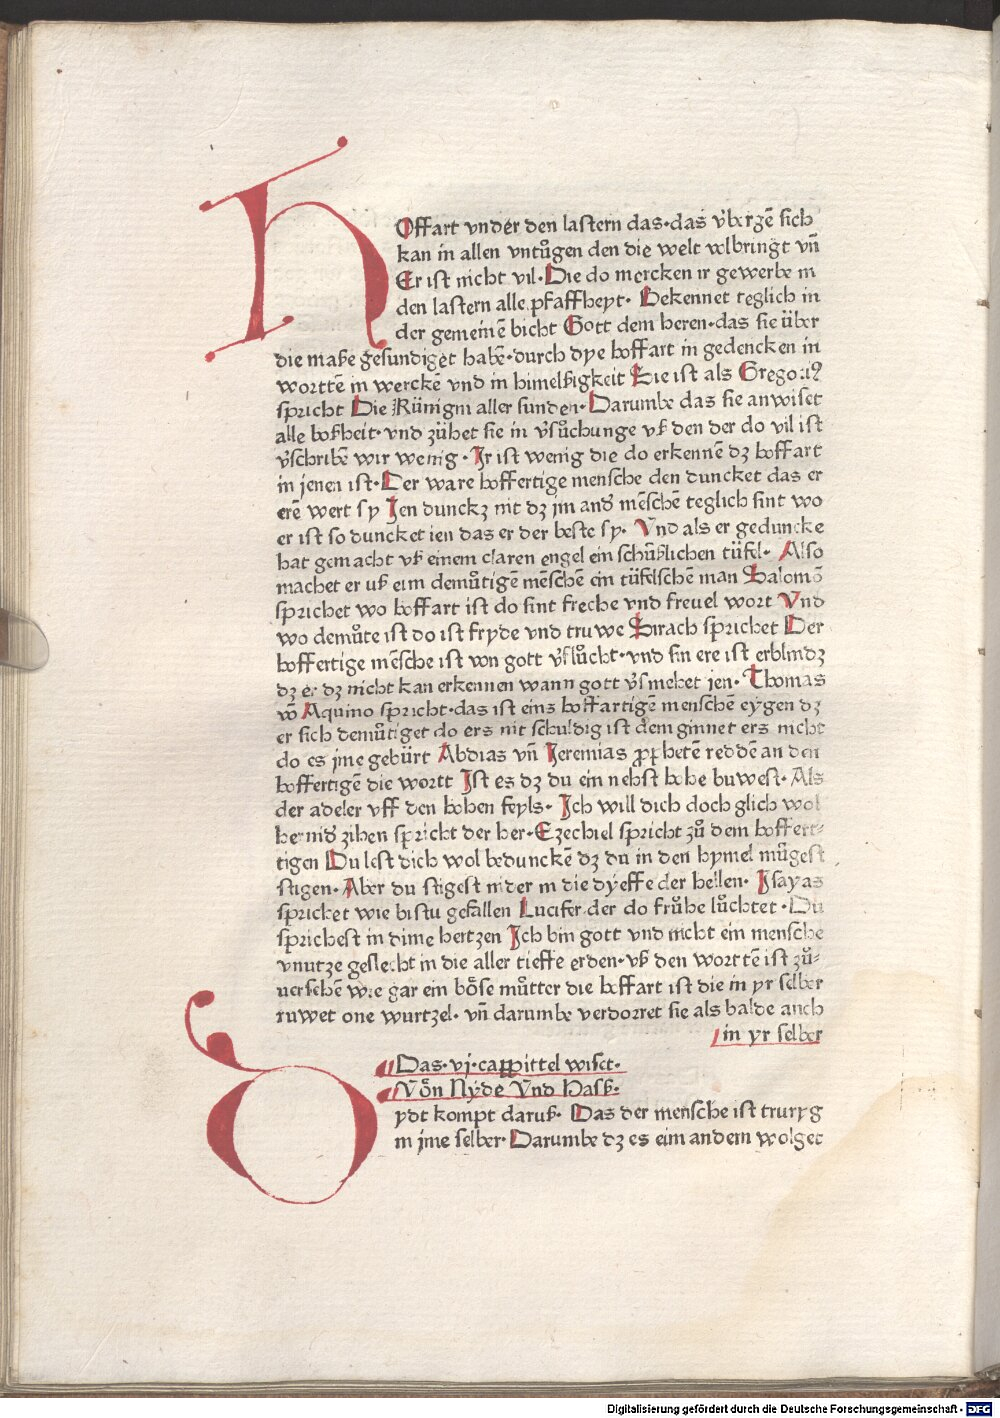 HOffart vnder den lastern das·das v̉bergē sich
kan in allen vntůgen den die welt volbringt vñ
Er ist nicht vil·Die do mercken ir gewerbe in
den lastern alle pfaffheyt· Bekennet teglich in
der gemeinē bicht Gott dem heren·das sie über
die maße gesundiget habē·durch dye hoffart in gedencken in
worttē in werckē vnd in himelßigkeit Sie ist als Gregoriꝰ
spricht Die Künigin aller sunden·Darumbe das sie anwiset
alle boßheit·vnd zühet sie in v̉sůchunge vß den der do vil ist
v̉schribē wir wenig·Ir ist wenig die do erkennē dz hoffart
in jenen ist·Der ware hoffertige mensche den duncket das er
erē wert sy Jen dunckz nit dz jm and̉ mēschē teglich sint wo
er ist so duncket ien das er der beste sy· Vnd als er geduncke
hat gemacht vß einem claren engel ein schüßlichen tüfel· Also
machet er uß eim demůtigē mēschē ein tüfelschē man Salomō
sprichet wo hoffart ist do sint freche vnd frevel wort Vnd
wo demůte ist do ist fryde vnd truwe Sirach sprichet Der
hoffertige mēsche ist von gott v̉flůcht·vnd sin ere ist erblindz
dz er dz nicht kan erkennen wann gott v̉smehet jen·Thomas
vō Aquino spricht·das ist eins hoffartigē menschē eygen dz
er sich demůtiget do ers nit schuldig ist dem ginnet ers nicht
do es jme gebürt Abdias vñ Jeremias ꝓphetē reddē an den
hoffertigē die wortt Ist es dz du ein nehst hohe buwest·Als
der adeler vff den hohen feyls· Ich will dich doch glich wol
her nid̉ zihen spricht der her·Ezechiel spricht zů dem hoffert⸗
tigen Du lest dich wol bedunckē dz du in den hymel můgest
stigen·Aber du stigest nider in die dyeffe der hellen· Isayas
spricket wie bistu gefallen Lucifer der do frůhe lůchtet·Du
sprichest in dime hertzen Ich bin gott vnd nicht ein mensche
vnutze geslecht in die aller tieffe erden·vß den worttē ist zů⸗
uersehen wie gar ein böse můtter die hoffart ist die in yr selber
ruwet one wurtzel· vñ darumbe verdorret sie als balde auch
in yr selber
Das·vj·cappittel wiset·
Vön Nyde Vnd Hasß·
ydt kompt daruß· Das der mensche ist truryg
in jme selber·Darumbe dz es eim andern wolget
Digitalisierung gefördert durch die Deutsche Forschungsgemeinschaft - DFG